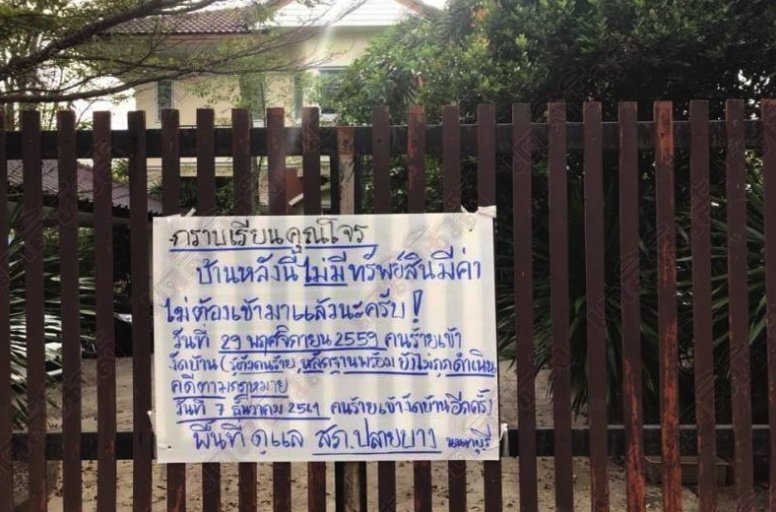 กราบเรียนคุณโจร
บ้านหลังนี้ไม่มีทรัพย์สินมีค่า
ไม่ต้องเข้ามาแล้วนะครับ!
วันที่ 29 พฤศจิกายน 2559 คนร้ายเข้า
งัดบ้าน (รู้ตัวคนร้าย, หลักฐานพร้อม ยังไม่ถูกดำเนิน
คดีตามกฎหมาย
วันที่ 7 ธันวาคม 2561 คนร้ายเข้างัดบ้านอีกครั้ง)
พื้นที่ดูแล สภ.ปลายบาง นนทบุรี